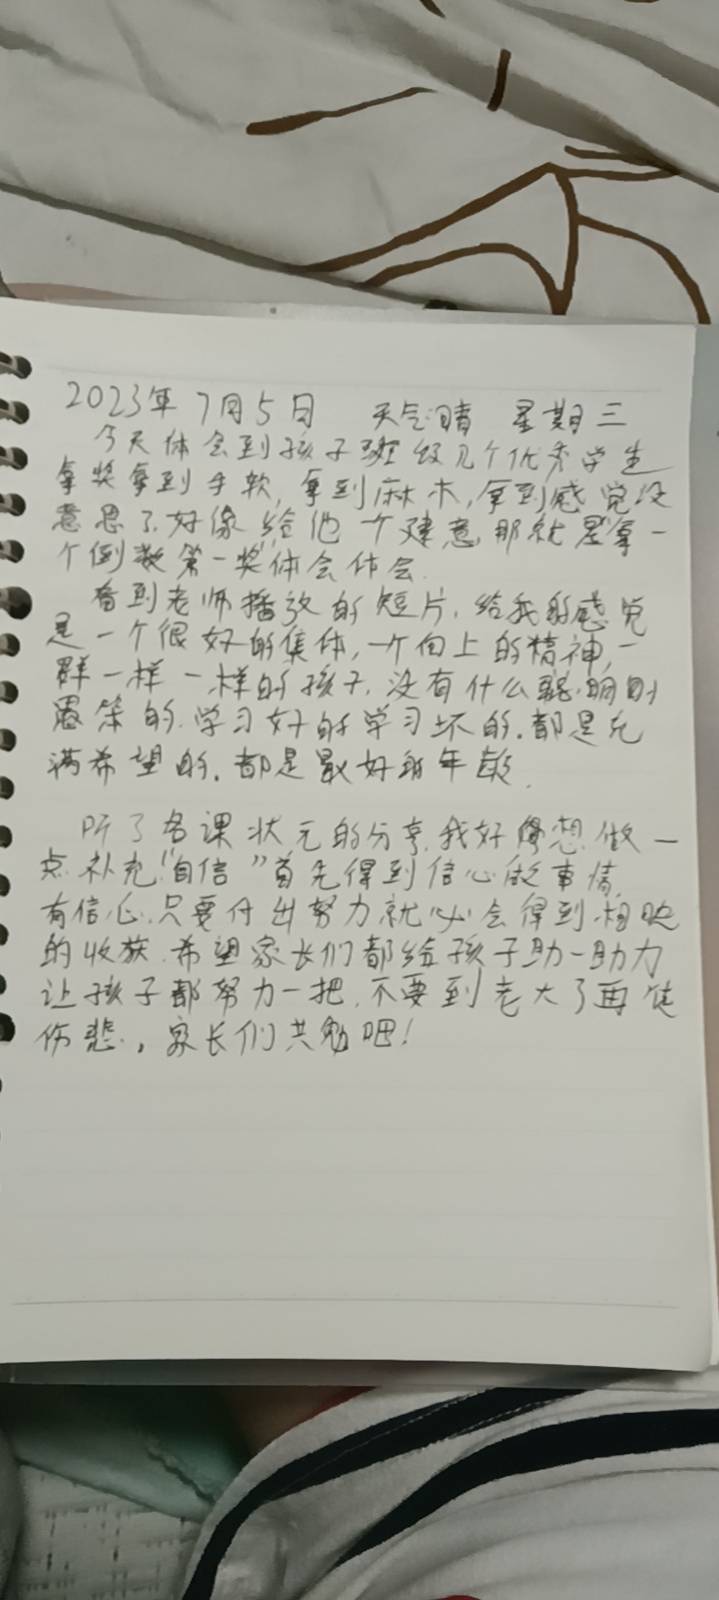 2023年7月5日 天气:晴 星期三
今天体会到孩子班级几个优秀学生
拿奖拿到手软,拿到麻木,拿到感觉没
意思了.好像给他一个建意.那就是拿一
个倒数第一奖体会体会.
看到老师播放的短片.给我的感觉
是一个很好的集体,一个向上的精神,一
群一样一样的孩子.没有什么聪明则
愚笨的.学习好的学习坏的.都是充
满希望的.都是最好的年龄.
听了各课状元的分享.我好像想做一
点补充"自信"首先得到信心做事情.
有信心.只要付出努力就必会得到相映
的收获.希望家长们都给孩子助一助力
让孩子都努力一把.不要到老大了再徒
伤悲,家长们共勉吧!